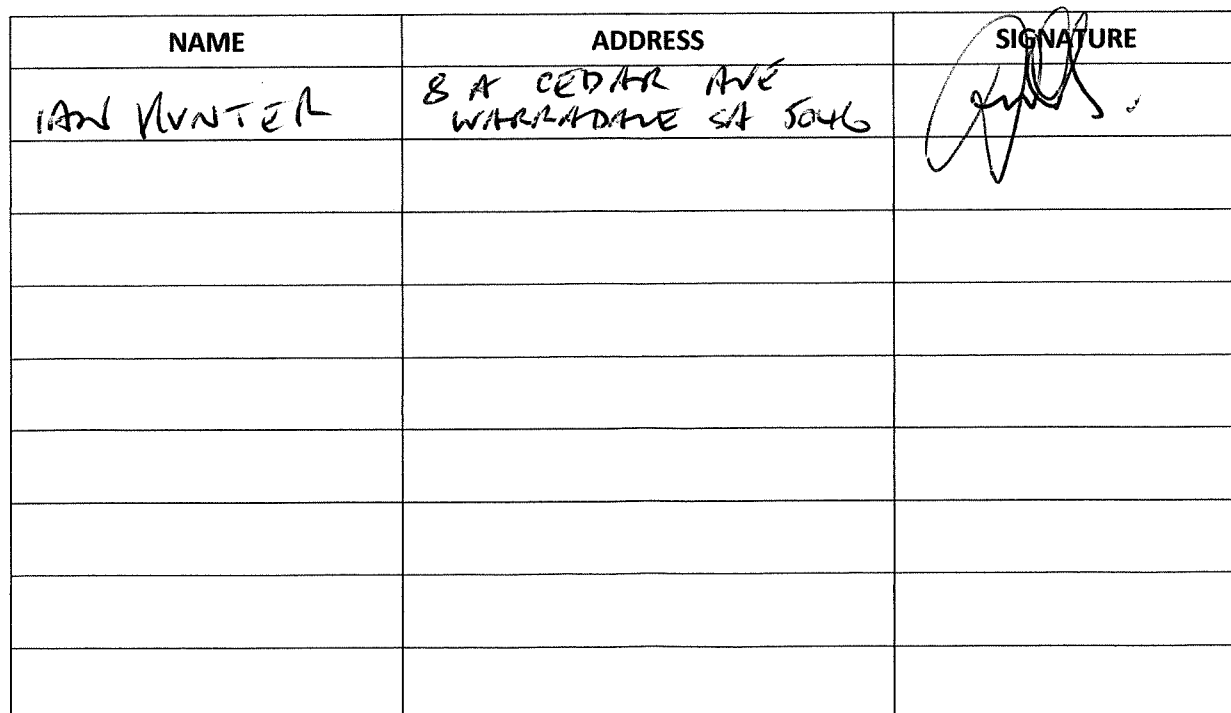 NAME ADDRESS SIGNATURE
IAN HUNTER
8 A CEDAR AVE
WARRADALE SA 5046